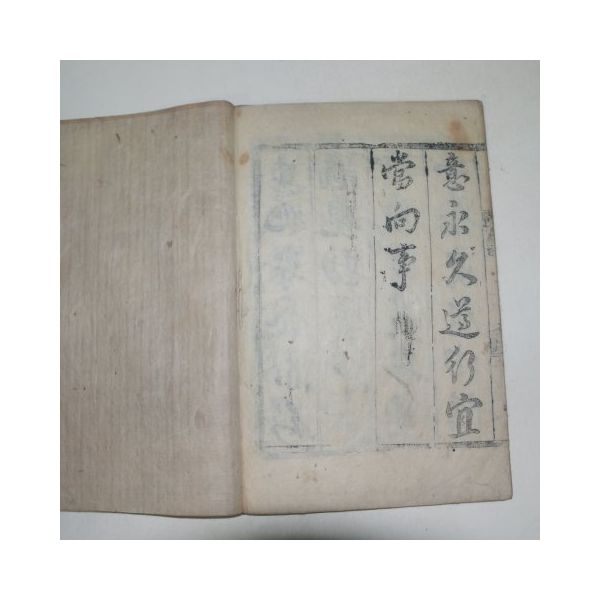 意永久遵行宜
當向事